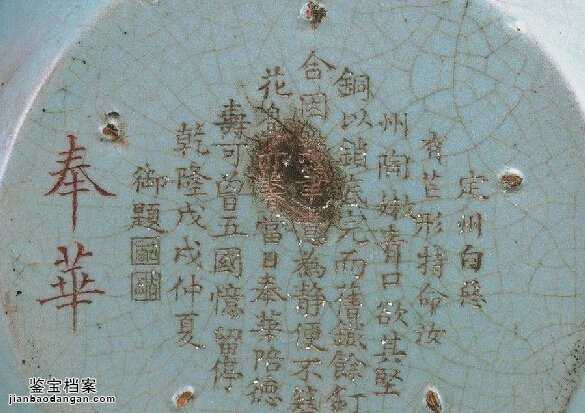 定州白惡
有芒形特命汝
州陶嫩青口欲其堅
銅以鎖底完而舊鐵餘釘
合因意為静便不
花當日奉華陪德
壽可曽五國憶留停
乾隆戊戌仲夏
御題
奉華
鉴宝档案
jianbaodangan.com